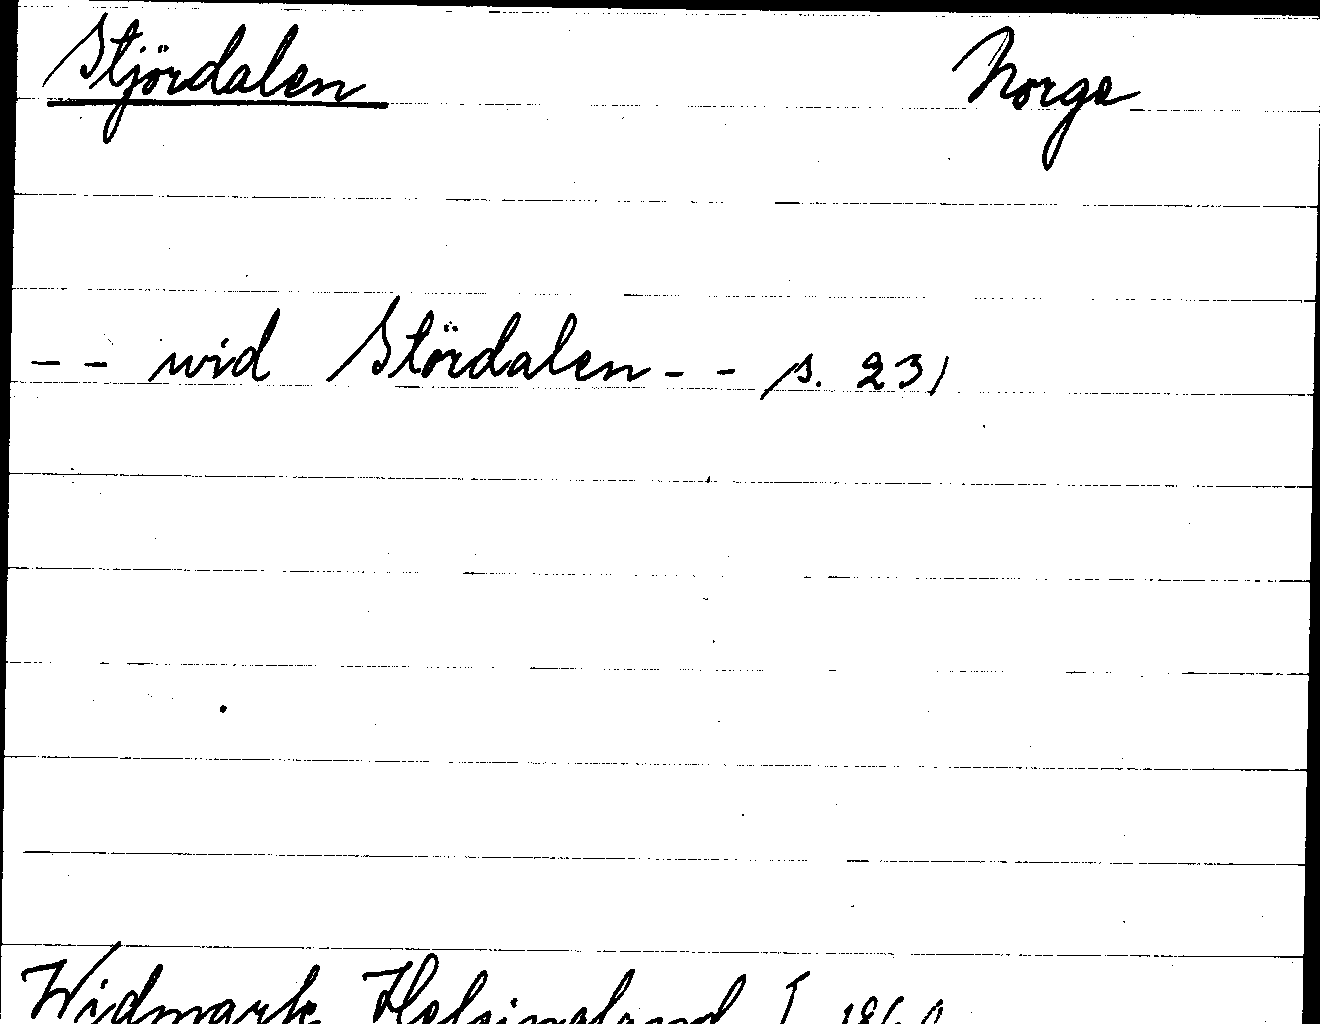 Stjördalen Norge
-- wid Stördalen -- s. 231
Widmark Helsingland I